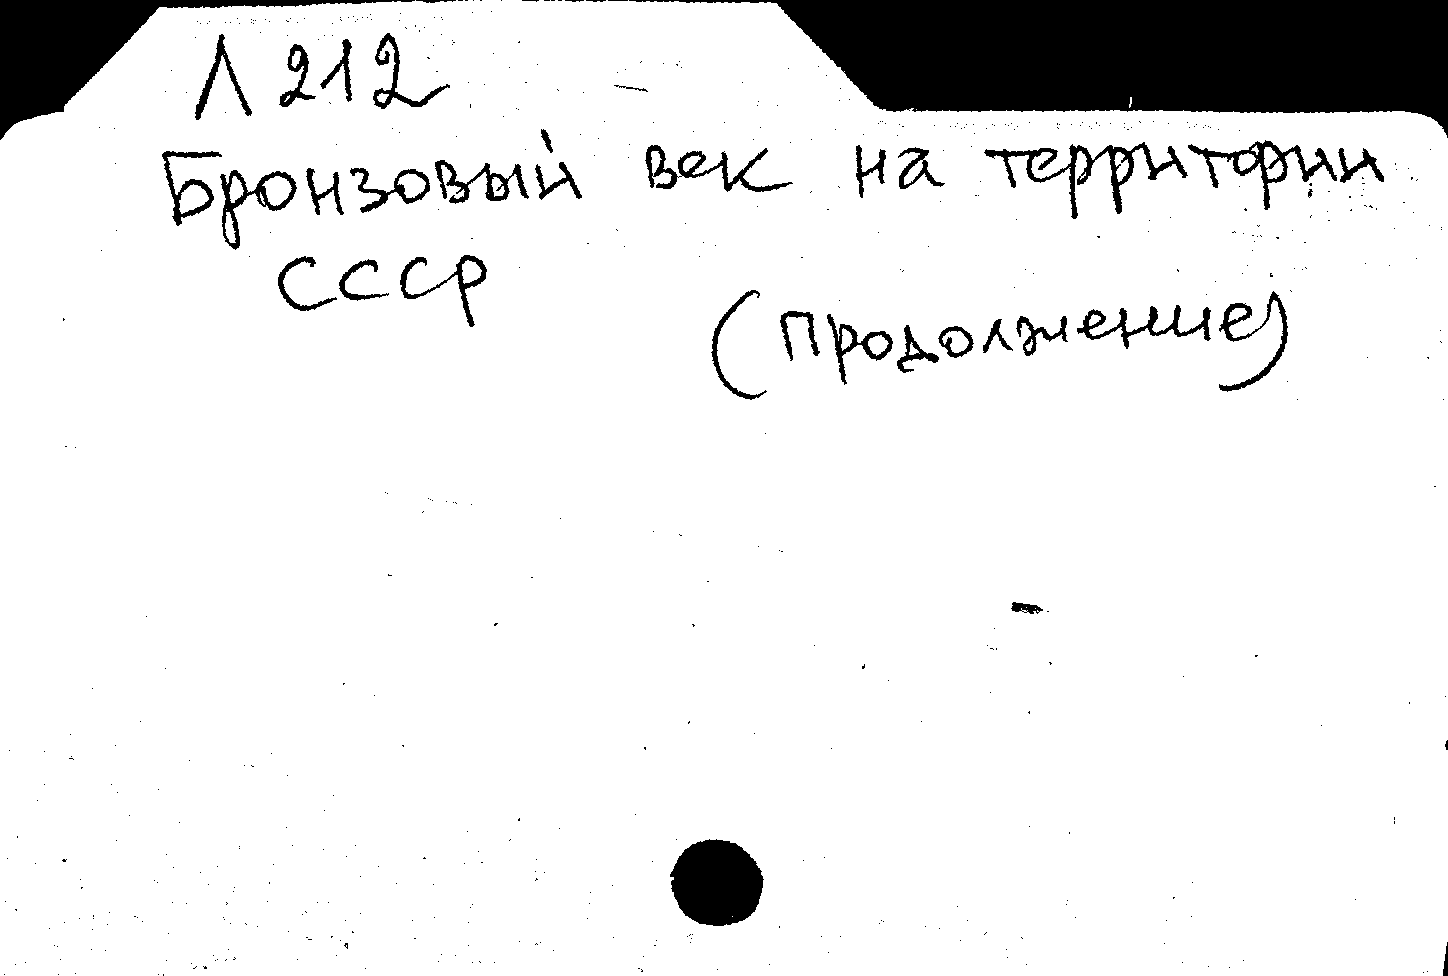 Л 212
Бронзовый век на территории
СССР
(Продолжение)